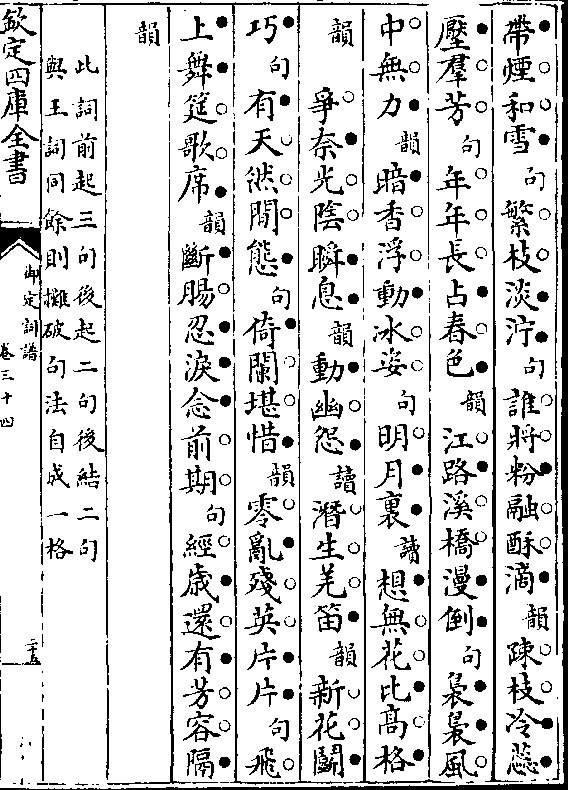 帶煙和雪句繁枝淡泞句誰將粉融酥滴韻踈枝冷蕊
壓羣芳句年年長占春色韻江路溪橋漫倒句裊裊風
中無力韻暗香浮動冰姿句明月裏讀想無花比高格
韻
爭奈光陰瞬息韻動幽怨讀潛生羌笛韻新花鬭
巧句有天然閒態句倚闌堪惜韻零亂殘英片片句飛
上舞筵歌席韻斷腸忍淚念前期句經歲還有芳容隔
韻
此詞前起三句後起二句後結二句
與王詞同餘則攤破句法自成一格
欽定四庫全書
御定詞譜
卷三十四
二十五